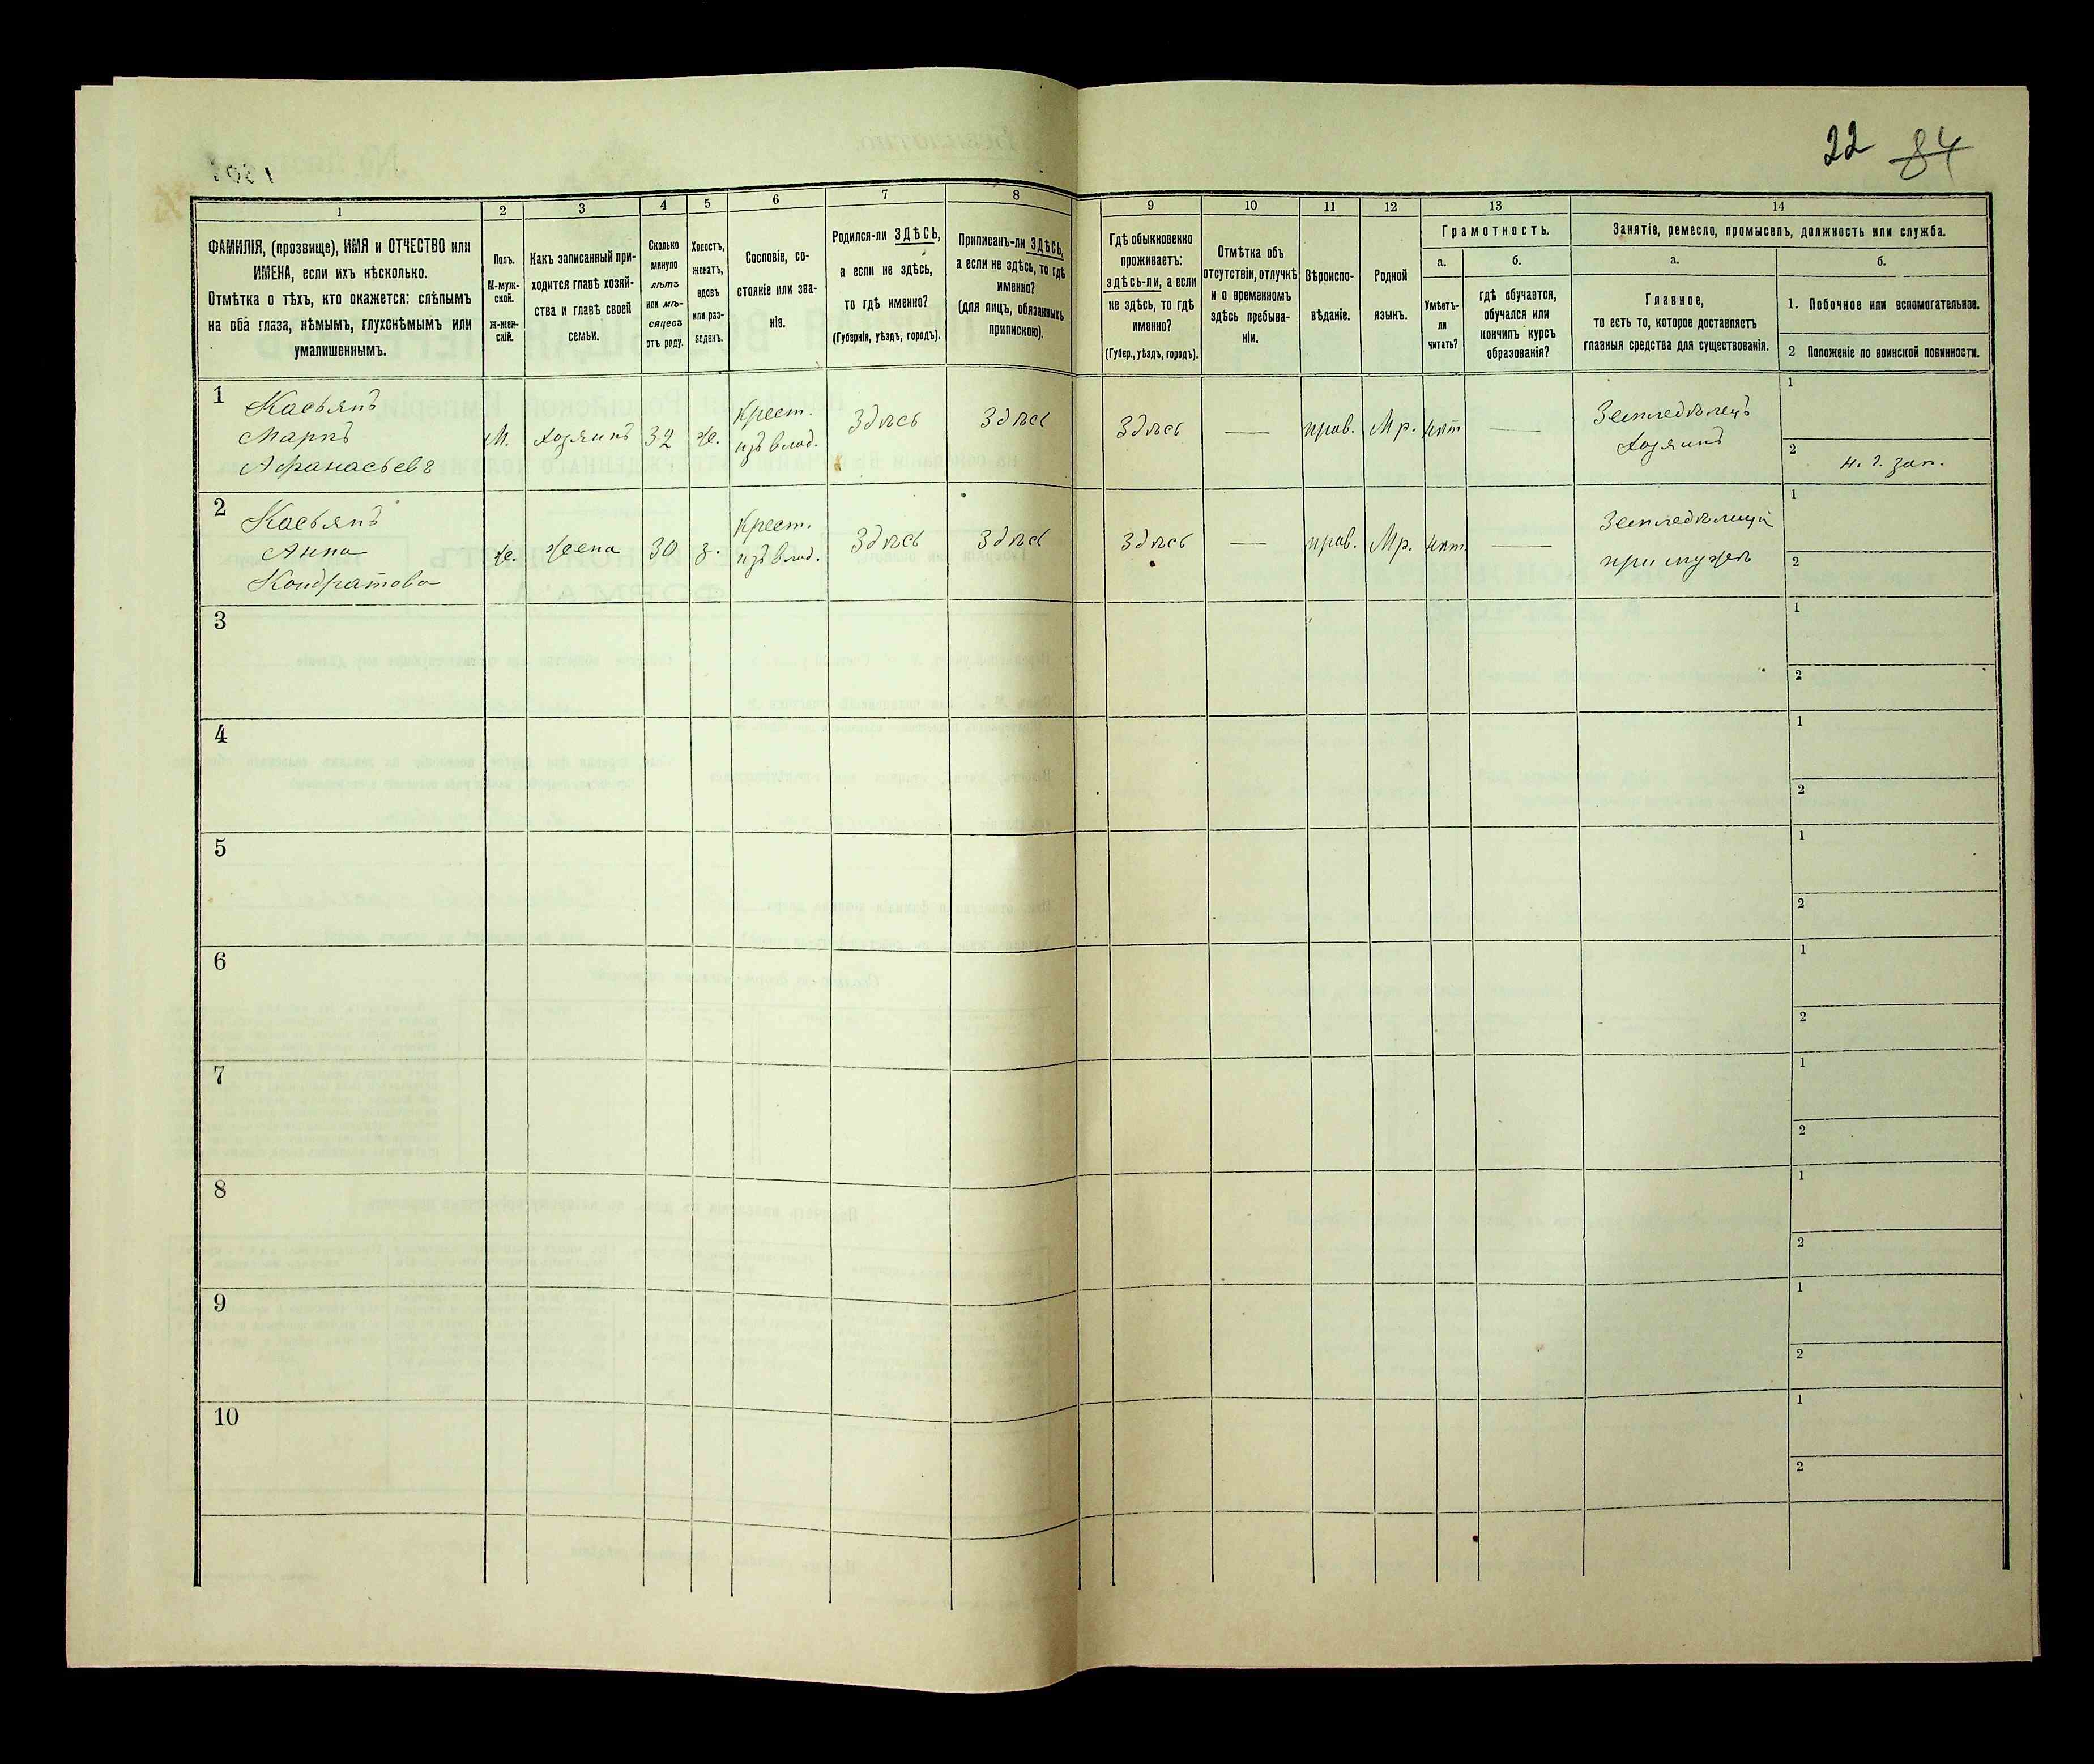 22 84
1
2
3
4
5
6
7
8
9
10
11
12
13
14
ФАМИЛІЯ, (прозвище), ИМЯ и ОТЧЕСТВО или
ИМЕНА, если ихъ нѣсколько.
Отмѣтка о тѣхъ, кто окажется: слѣпымъ
на оба глаза, нѣмымъ, глухонѣмымъ или
умалишеннымъ.
Полъ.
М-муж-
ской.
Ж-жен-
скій.
Какъ записанный при-
ходится главѣ хозяй-
ства и главѣ своей
семьи.
Сколько
минуло
лѣтъ
или мѣ-
сяцевъ
отъ роду.
Холостъ,
женатъ,
вдовъ
или раз-
веденъ.
Сословіе, со-
стояніе или зва-
ніе.
Родился-ли ЗДѢСЬ,
а если не здѣсь,
то гдѣ именно?
(Губернія, уѣздъ, городъ).
Приписанъ-ли ЗДѢСЬ,
а если не здѣсь, то гдѣ
именно?
(для лицъ, обязанныхъ
припискою).
Гдѣ обыкновенно
проживаетъ:
здѣсь-ли, а если
не здѣсь, то гдѣ
именно?
(Губер., уѣздъ, городъ).
Отмѣтка объ
отсутствіи, отлучкѣ
и о временномъ
здѣсь пребыва-
ніи.
Вѣроиспо-
вѣданіе.
Родной
языкъ.
Грамотность.
а.
Умѣетъ-
ли
читать?
б.
гдѣ обучается,
обучался или
кончилъ курсъ
образованія?
Занятіе, ремесло, промыселъ, должность или служба.
а.
Главное,
то есть то, которое доставляетъ
главныя средства для существованія.
б.
1. Побочное или вспомогательное.
2 Положеніе по воинской повинности.
1
Касьянъ
Маркъ
Афанасьевъ
М.
хозяинъ
32
ж.
Крест.
изъ влад.
Здѣсь
Здѣсь
Здѣсь
—
прав.
Мр.
нѣт
—
Земледѣлецъ
Хозяинъ
1
2
н. г. зап.
2
Касьянъ
Анна
Кондратова
ж.
жена
30
з.
Крест.
изъ влад.
Здѣсь
Здѣсь
Здѣсь
—
прав.
Мр.
нѣт.
—
при мужѣ
1
2
3
1
2
4
1
2
5
1
2
6
1
2
7
1
2
8
1
2
9
1
2
10
1
2